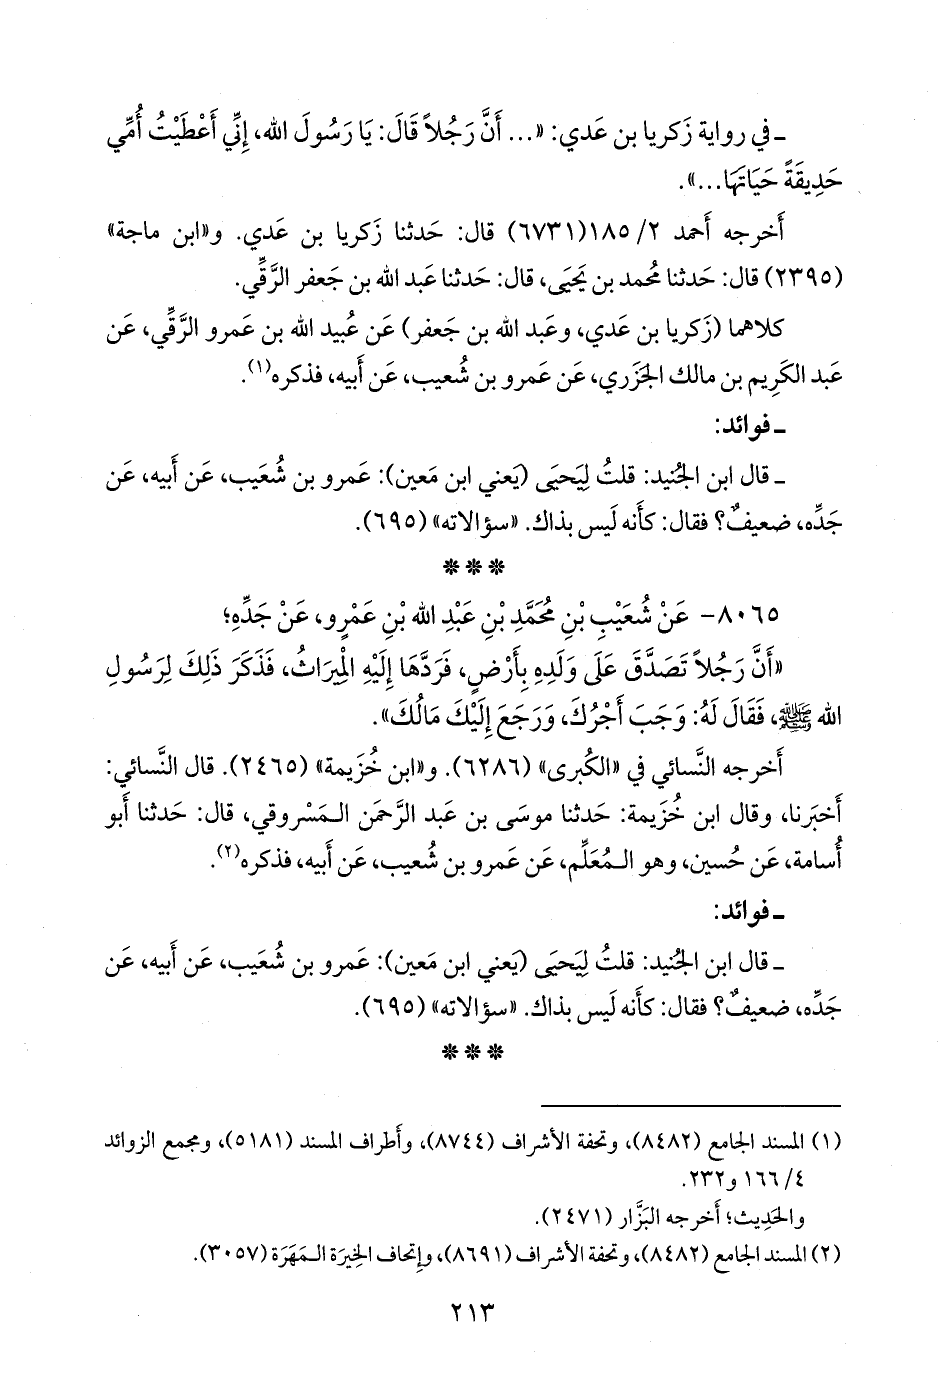 ـ في رواية زَكريا بن عَدي: «... أَنَّ رَجُلاً قَالَ: يَا رَسُولَ الله، إِنِّي أَعْطَيْتُ أُمِّي
حَدِيقَةً حَيَاتَهَا...».
أَخرجه أَحمد ٢/ ١٨٥(٦٧٣١) قال: حَدثنا زَكريا بن عَدي. و«ابن ماجة»
(٢٣٩٥) قال: حَدثنا مُحمد بن يَحيَى، قال: حَدثنا عَبد الله بن جَعفر الرَّقِّي.
كلاهما (زَكريا بن عَدي، وعَبد الله بن جَعفر) عَن عُبيد الله بن عَمرو الرَّقِّي، عَن
عَبد الكَرِيم بن مالك الجَزَري، عَن عَمرو بن شُعيب، عَن أَبيه، فذكره(١).
ـ فوائد:
ـ قال ابن الجُنيد: قلتُ لِيَحيَى (يَعني ابن مَعين): عَمرو بن شُعَيب، عَن أَبيه، عَن
جَدِّه، ضعيفٌ؟ فقال: كأَنه لَيس بذاك. «سؤالاته» (٦٩٥).
* * *
٨٠٦٥- عَنْ شُعَيْبِ بْنِ مُحَمَّدِ بْنِ عَبْدِ الله بْنِ عَمْرٍو، عَنْ جَدِّهِ؛
«أَنَّ رَجُلاً تَصَدَّقَ عَلَى وَلَدِهِ بِأَرْضٍ، فَرَدَّهَا إِلَيْهِ الْمِيرَاثُ، فَذَكَرَ ذَلِكَ لِرَسُولِ
الله ﷺ، فَقَالَ لَهُ: وَجَبَ أَجْرُكَ، وَرَجَعَ إِلَيْكَ مَالُكَ».
أَخرجه النَّسائي في «الكُبرى» (٦٢٨٦). و«ابن خُزيمة» (٢٤٦٥). قال النَّسائي:
أَخبَرنا، وقال ابن خُزَيمة: حَدثنا موسَى بن عَبد الرَّحمَن الـمَسْروقي، قال: حَدثنا أَبو
أُسامة، عَن حُسين، وهو الـمُعَلِّم، عَن عَمرو بن شُعيب، عَن أَبيه، فذكره(٢).
ـ فوائد:
ـ قال ابن الجُنيد: قلتُ لِيَحيَى (يَعني ابن مَعين): عَمرو بن شُعَيب، عَن أَبيه، عَن
جَدِّه، ضعيفٌ؟ فقال: كأَنه لَيس بذاك. «سؤالاته» (٦٩٥).
* * *
(١) المسند الجامع (٨٤٨٢)، وتحفة الأشراف (٨٧٤٤)، وأَطراف المسند (٥١٨١)، ومجمع الزوائد
٤/ ١٦٦ و٢٣٢.
والحَدِيث؛ أَخرجه البَزَّار (٢٤٧١).
(٢) المسند الجامع (٨٤٨٢)، وتحفة الأشراف (٨٦٩١)، وإِتحاف الخِيرَة الـمَهَرَة (٣٠٥٧).
٢١٣